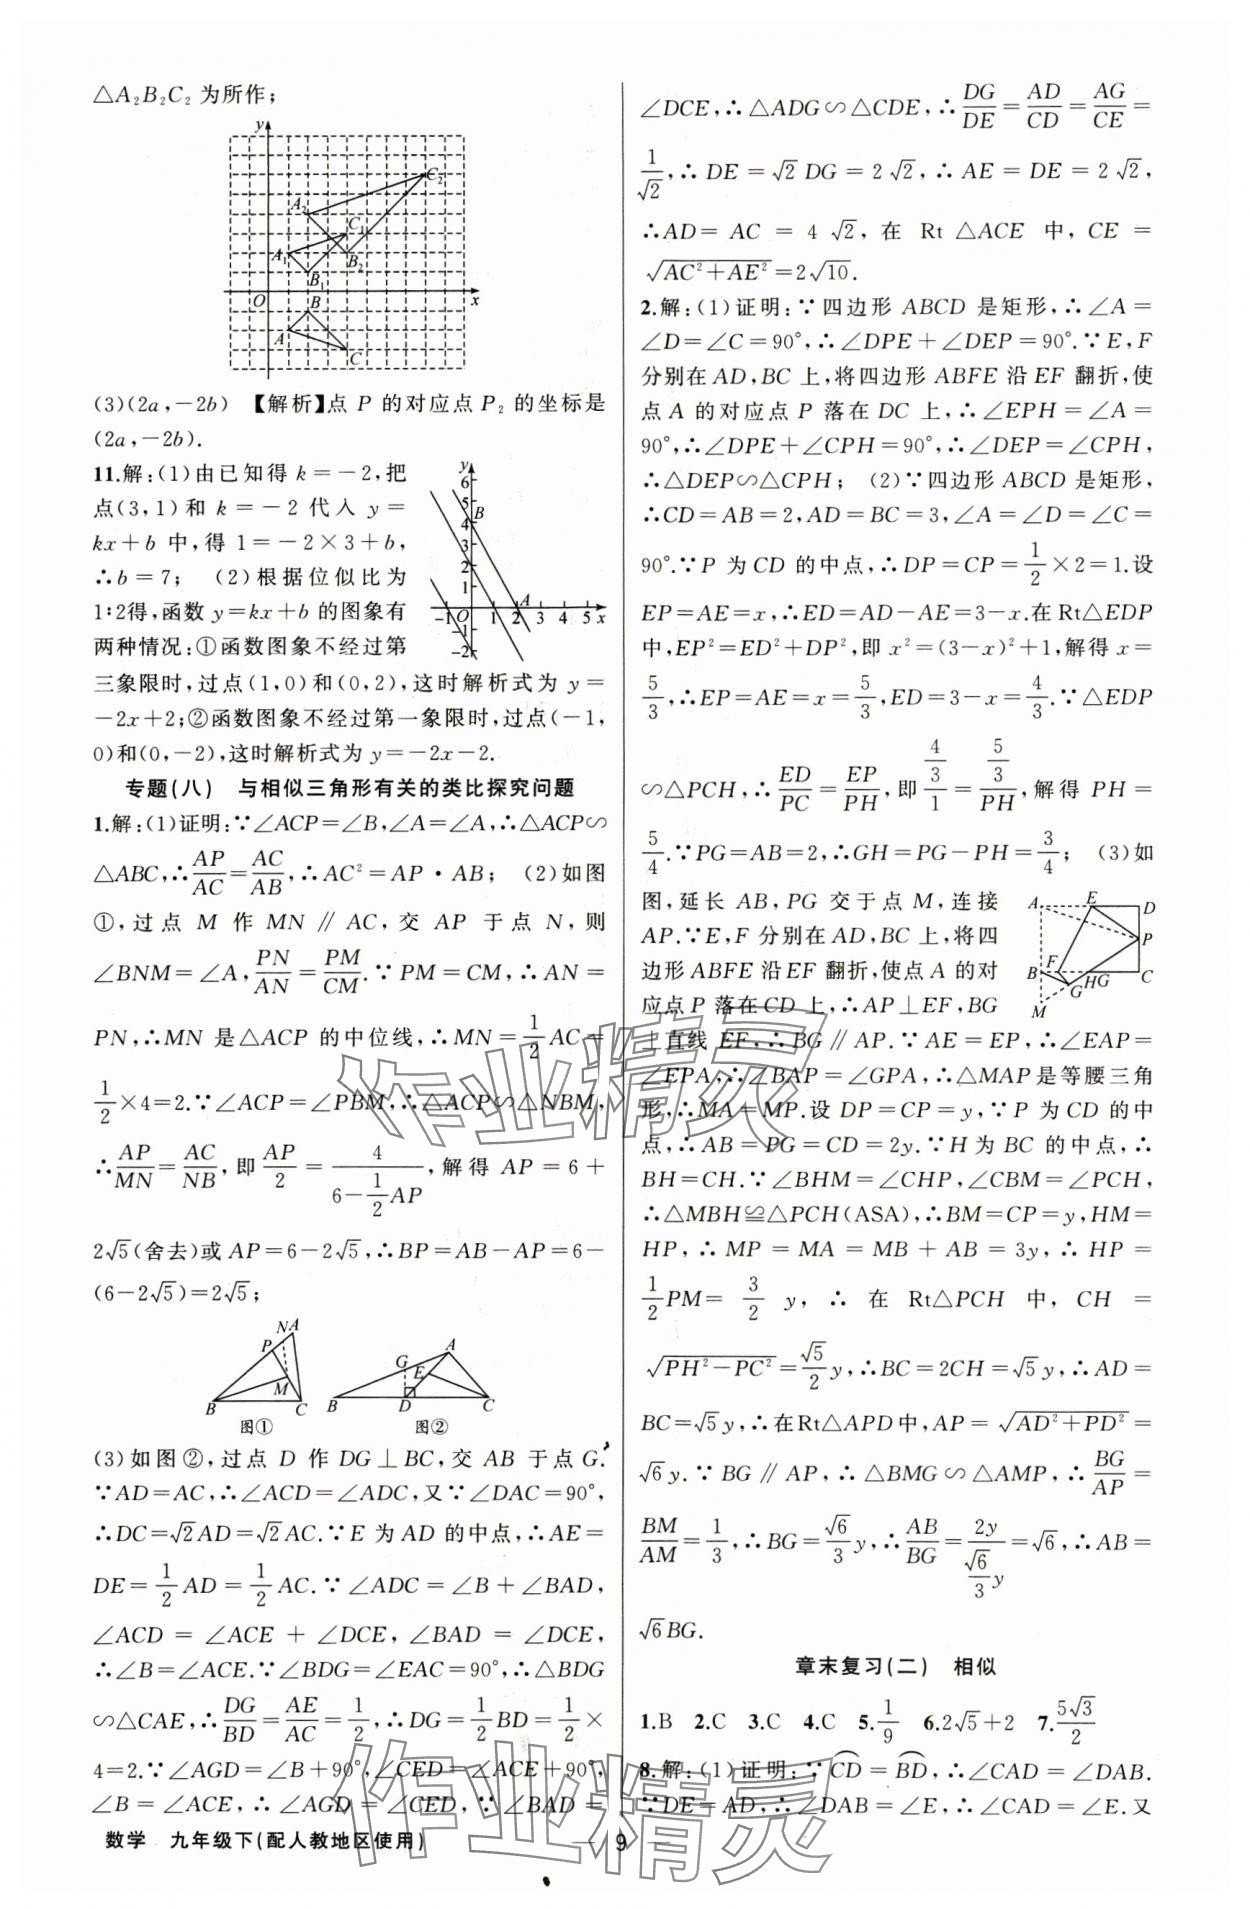 △A₂B₂C₂ 为所作;
y
C₂
A₂
C₁
A₁
B₂
B₁
O
B
x
A
C
(3)(2a,-2b) 【解析】点 P 的对应点 P₂ 的坐标是
(2a,-2b).
11.解:(1)由已知得 k=-2,把
点(3,1)和 k=-2 代入 y=
kx+b 中,得 1=-2×3+b,
∴b=7; (2)根据位似比为
1∶2得,函数 y=kx+b 的图象有
两种情况:①函数图象不经过第
三象限时,过点(1,0)和(0,2),这时解析式为 y=
-2x+2;②函数图象不经过第一象限时,过点(-1,
0)和(0,-2),这时解析式为 y=-2x-2.
y
6
5
4
3
2
1
B
A
-1 O 1 2 3 4 5 x
-1
-2
专题(八) 与相似三角形有关的类比探究问题
1.解:(1)证明:∵∠ACP=∠B,∠A=∠A,∴△ACP∽
△ABC,∴AP/AC=AC/AB,∴AC²=AP·AB; (2)如图
①,过点 M 作 MN∥AC,交 AP 于点 N,则
∠BNM=∠A,PN/AN=PM/CM.∵PM=CM,∴AN=
PN,∴MN 是△ACP 的中位线,∴MN=1/2AC=
1/2×4=2.∵∠ACP=∠PBM,∴△ACP∽△NBM,
∴AP/MN=AC/NB,即AP/2=4/(6-1/2AP),解得 AP=6+
2√5(舍去)或 AP=6-2√5,∴BP=AB-AP=6-
(6-2√5)=2√5;
N A
P
M
B C
图①
A
G
E
B D C
图②
(3)如图②,过点 D 作 DG⊥BC,交 AB 于点 G.
∵AD=AC,∴∠ACD=∠ADC,又∵∠DAC=90°,
∴DC=√2AD=√2AC.∵E 为 AD 的中点,∴AE=
DE=1/2AD=1/2AC.∵∠ADC=∠B+∠BAD,
∠ACD=∠ACE+∠DCE,∠BAD=∠DCE,
∴∠B=∠ACE.∵∠BDG=∠EAC=90°,∴△BDG
∽△CAE,∴DG/BD=AE/AC=1/2,∴DG=1/2BD=1/2×
4=2.∵∠AGD=∠B+90°,∠CED=∠ACE+90°,
∠B=∠ACE,∴∠AGD=∠CED,∵∠BAD=
∠DCE,∴△ADG∽△CDE,∴DG/DE=AD/CD=AG/CE=
1/√2,∴DE=√2DG=2√2,∴AE=DE=2√2,
∴AD=AC=4√2,在 Rt△ACE 中,CE=
√(AC²+AE²)=2√10.
2.解:(1)证明:∵四边形 ABCD 是矩形,∴∠A=
∠D=∠C=90°,∴∠DPE+∠DEP=90°.∵E,F
分别在 AD,BC 上,将四边形 ABFE 沿 EF 翻折,使
点 A 的对应点 P 落在 DC 上,∴∠EPH=∠A=
90°,∴∠DPE+∠CPH=90°,∴∠DEP=∠CPH,
∴△DEP∽△CPH; (2)∵四边形 ABCD 是矩形,
∴CD=AB=2,AD=BC=3,∠A=∠D=∠C=
90°.∵P 为 CD 的中点,∴DP=CP=1/2×2=1.设
EP=AE=x,∴ED=AD-AE=3-x.在Rt△EDP
中,EP²=ED²+DP²,即 x²=(3-x)²+1,解得 x=
5/3,∴EP=AE=x=5/3,ED=3-x=4/3.∵△EDP
∽△PCH,∴ED/PC=EP/PH,即(4/3)/1=(5/3)/PH,解得 PH=
5/4.∵PG=AB=2,∴GH=PG-PH=3/4; (3)如
图,延长 AB,PG 交于点 M,连接
AP.∵E,F 分别在 AD,BC 上,将四
边形 ABFE 沿 EF 翻折,使点 A 的对
应点 P 落在 CD 上,∴AP⊥EF,BG
⊥直线 EF,∴BG∥AP.∵AE=EP,∴∠EAP=
∠EPA,∴∠BAP=∠GPA,∴△MAP是等腰三角
形,∴MA=MP.设 DP=CP=y,∵P 为 CD 的中
点,∴AB=PG=CD=2y.∵H 为 BC 的中点,∴
BH=CH.∵∠BHM=∠CHP,∠CBM=∠PCH,
∴△MBH≌△PCH(ASA),∴BM=CP=y,HM=
HP,∴MP=MA=MB+AB=3y,∴HP=
1/2PM=3/2y,∴在 Rt△PCH 中,CH=
√(PH²-PC²)=√5/2y,∴BC=2CH=√5y,∴AD=
BC=√5y,∴在Rt△APD中,AP=√(AD²+PD²)=
√6y.∵BG∥AP,∴△BMG∽△AMP,∴BG/AP=
BM/AM=1/3,∴BG=√6/3y,∴AB/BG=2y/(√6/3y)=√6,∴AB=
√6BG.
A E D
P
B F H G C
G
M
章末复习(二) 相似
1.B 2.C 3.C 4.C 5.1/9 6.2√5+2 7.5√3/2
8.解:(1)证明:∵C͡D=B͡D,∴∠CAD=∠DAB.
∵DE=AD,∴∠DAB=∠E,∴∠CAD=∠E.又
数学 九年级下(配人教地区使用)
9
作业精灵
作业精灵